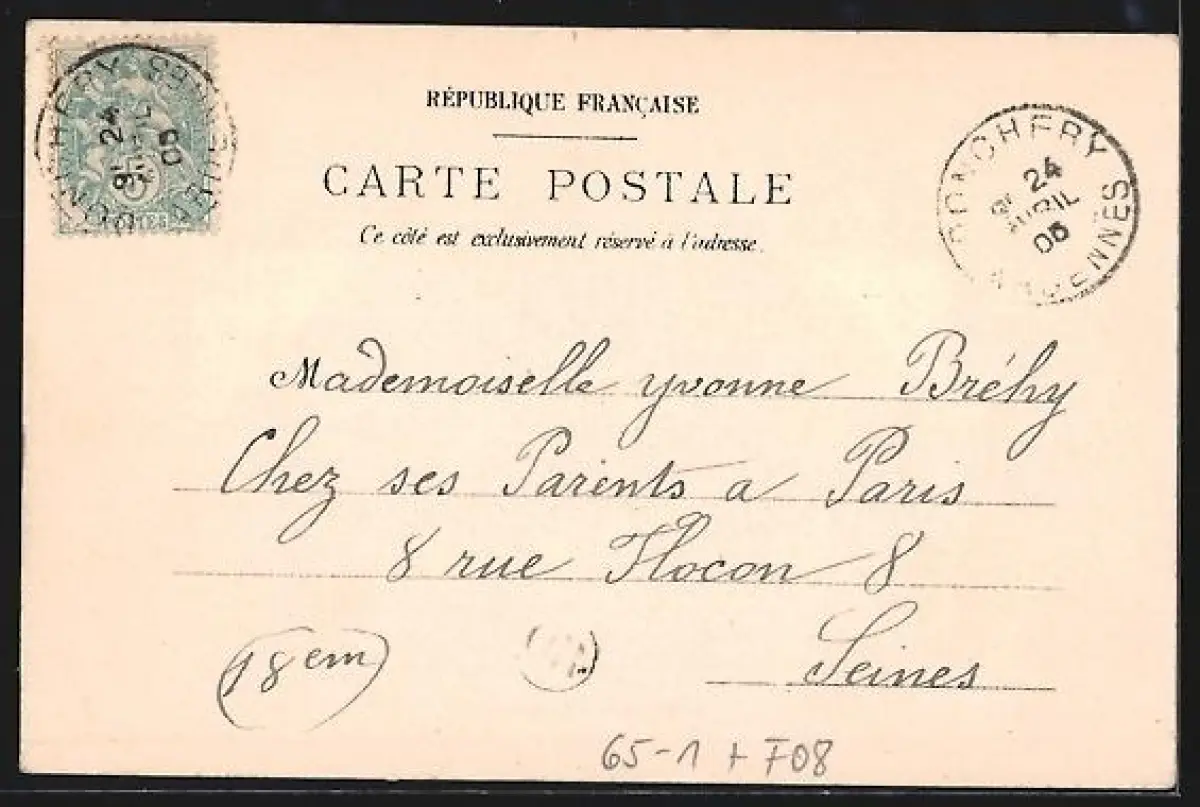 RÉPUBLIQUE FRANÇAISE
CARTE POSTALE
Ce côté est exclusivement réservé à l'adresse.
DONCHERY
24
AVRIL
ARDENNES
DONCHERY
24
AVRIL
05
Mademoiselle Yvonne Bréhy
Chez ses Parents a Paris
8 rue Flocon 8
Seines
(18em)
65-1 + F08